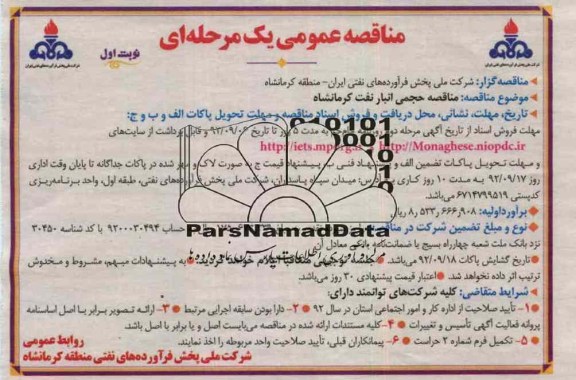 مناقصه عمومی یک مرحله‌ای
نوبت اول
مناقصه گزار: شرکت ملی پخش فرآورده‌های نفتی ایران- منطقه کرمانشاه
موضوع مناقصه: مناقصه حجمی انبار نفت کرمانشاه
تاریخ، مهلت، نشانی، محل دریافت و فروش اسناد مناقصه و مهلت تحویل پاکات الف و ب و ج:
مهلت فروش اسناد از تاریخ آگهی مرحله دوم به مدت ۵ روز تا تاریخ و قابل برداشت از سایت‌های
http://iets.mporg.ir http://Monaghese.niopdc.ir
و مهلت تحویل پاکات تضمین الف و پیشنهاد فنی ب پیشنهاد قیمت ج به صورت لاک و مهر شده در پاکات جداگانه تا پایان وقت اداری
روز ۹۲/۰۹/۱۷ به مدت ۱۰ روز کاری به آدرس: میدان سپاه پاسداران، شرکت ملی پخش فرآورده‌های نفتی، طبقه اول، واحد برنامه‌ریزی
کدپستی ۶۷۱۴۷۹۹۵۱۹ می‌باشد.
برآورد اولیه:
نوع و مبلغ تضمین شرکت در مناقصه حساب ۹۲۰۰۰۳۰۴۹۴ با کد شناسه ۳۰۴۵۰
نزد بانک ملت شعبه چهارراه بسیج یا ضمانت‌نامه بانکی معادل آن
تاریخ گشایش پاکات ۹۲/۰۹/۱۸ می‌باشد. جلسه توجیهی متعاقبا اعلام خواهد گردید. به پیشنهادات مبهم، مشروط و مخدوش
ترتیب اثر داده نخواهد شد. اعتبار قیمت پیشنهادی ۳۰ روز می‌باشد.
شرایط متقاضی: کلیه شرکت‌های توانمند دارای:
۱- تأیید صلاحیت از اداره کار و امور اجتماعی استان در سال ۹۲ ۲- دارا بودن سابقه اجرایی مرتبط ۳- ارائه تصویر برابر با اصل اساسنامه
پروانه فعالیت آگهی تأسیس و تغییرات ۴- کلیه مستندات ارائه شده در مناقصه می‌بایست اصل و یا برابر با اصل باشد.
۵- تکمیل فرم شماره ۲ حراست ۶- پیمانکاران قبلی، تأیید صلاحیت واحد مربوطه را اخذ نمایند.
روابط عمومی
شرکت ملی پخش فرآورده‌های نفتی منطقه کرمانشاه
ParsNamadData